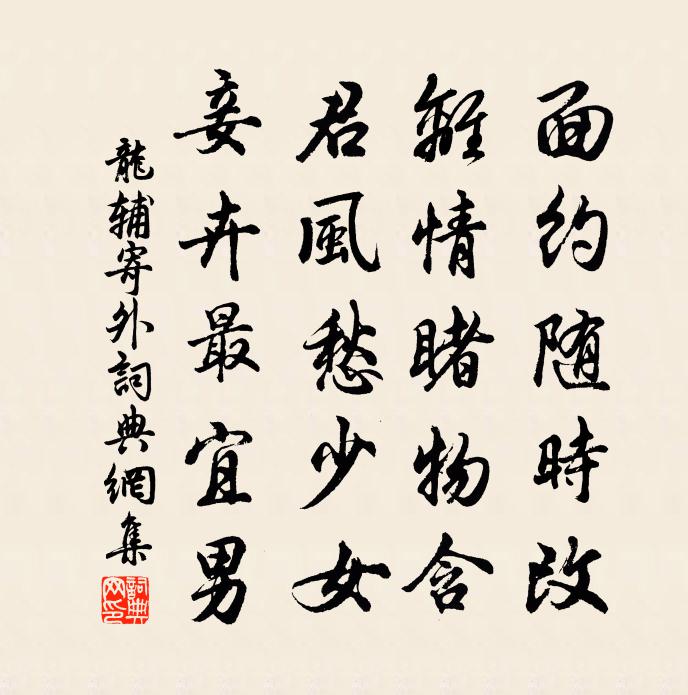 面约随時改
離情睹物含
君風愁少女
妾卉最宜男
龍辅寄外詞典網集
詞典網印